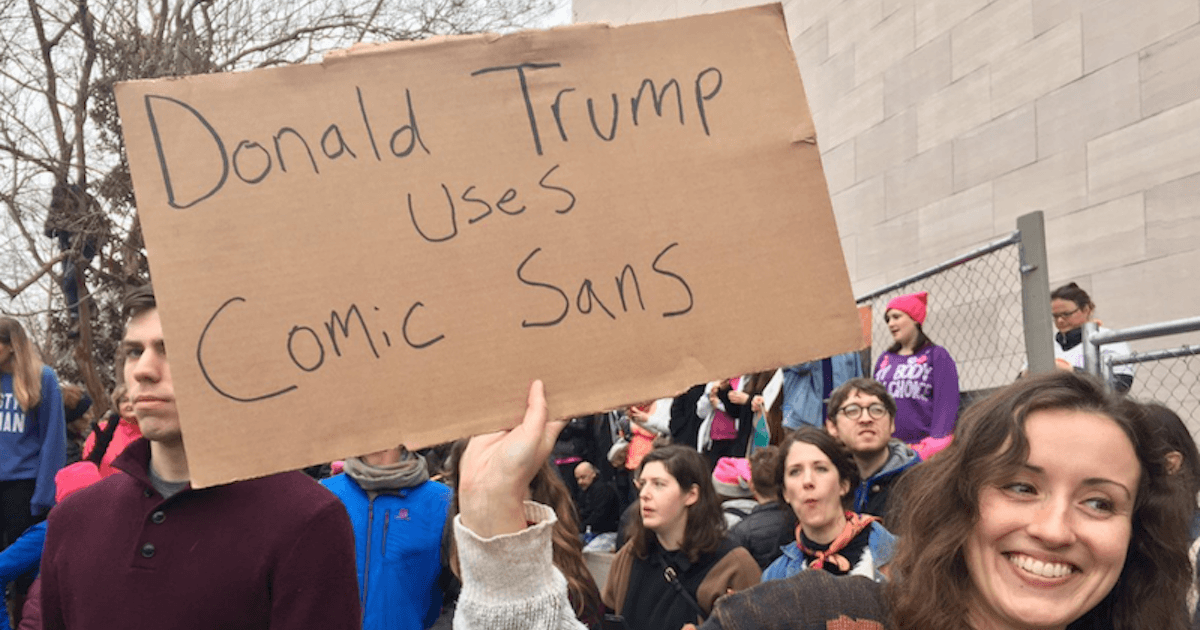 Donald Trump
uses
Comic Sans
MY BODY
MY CHOICE